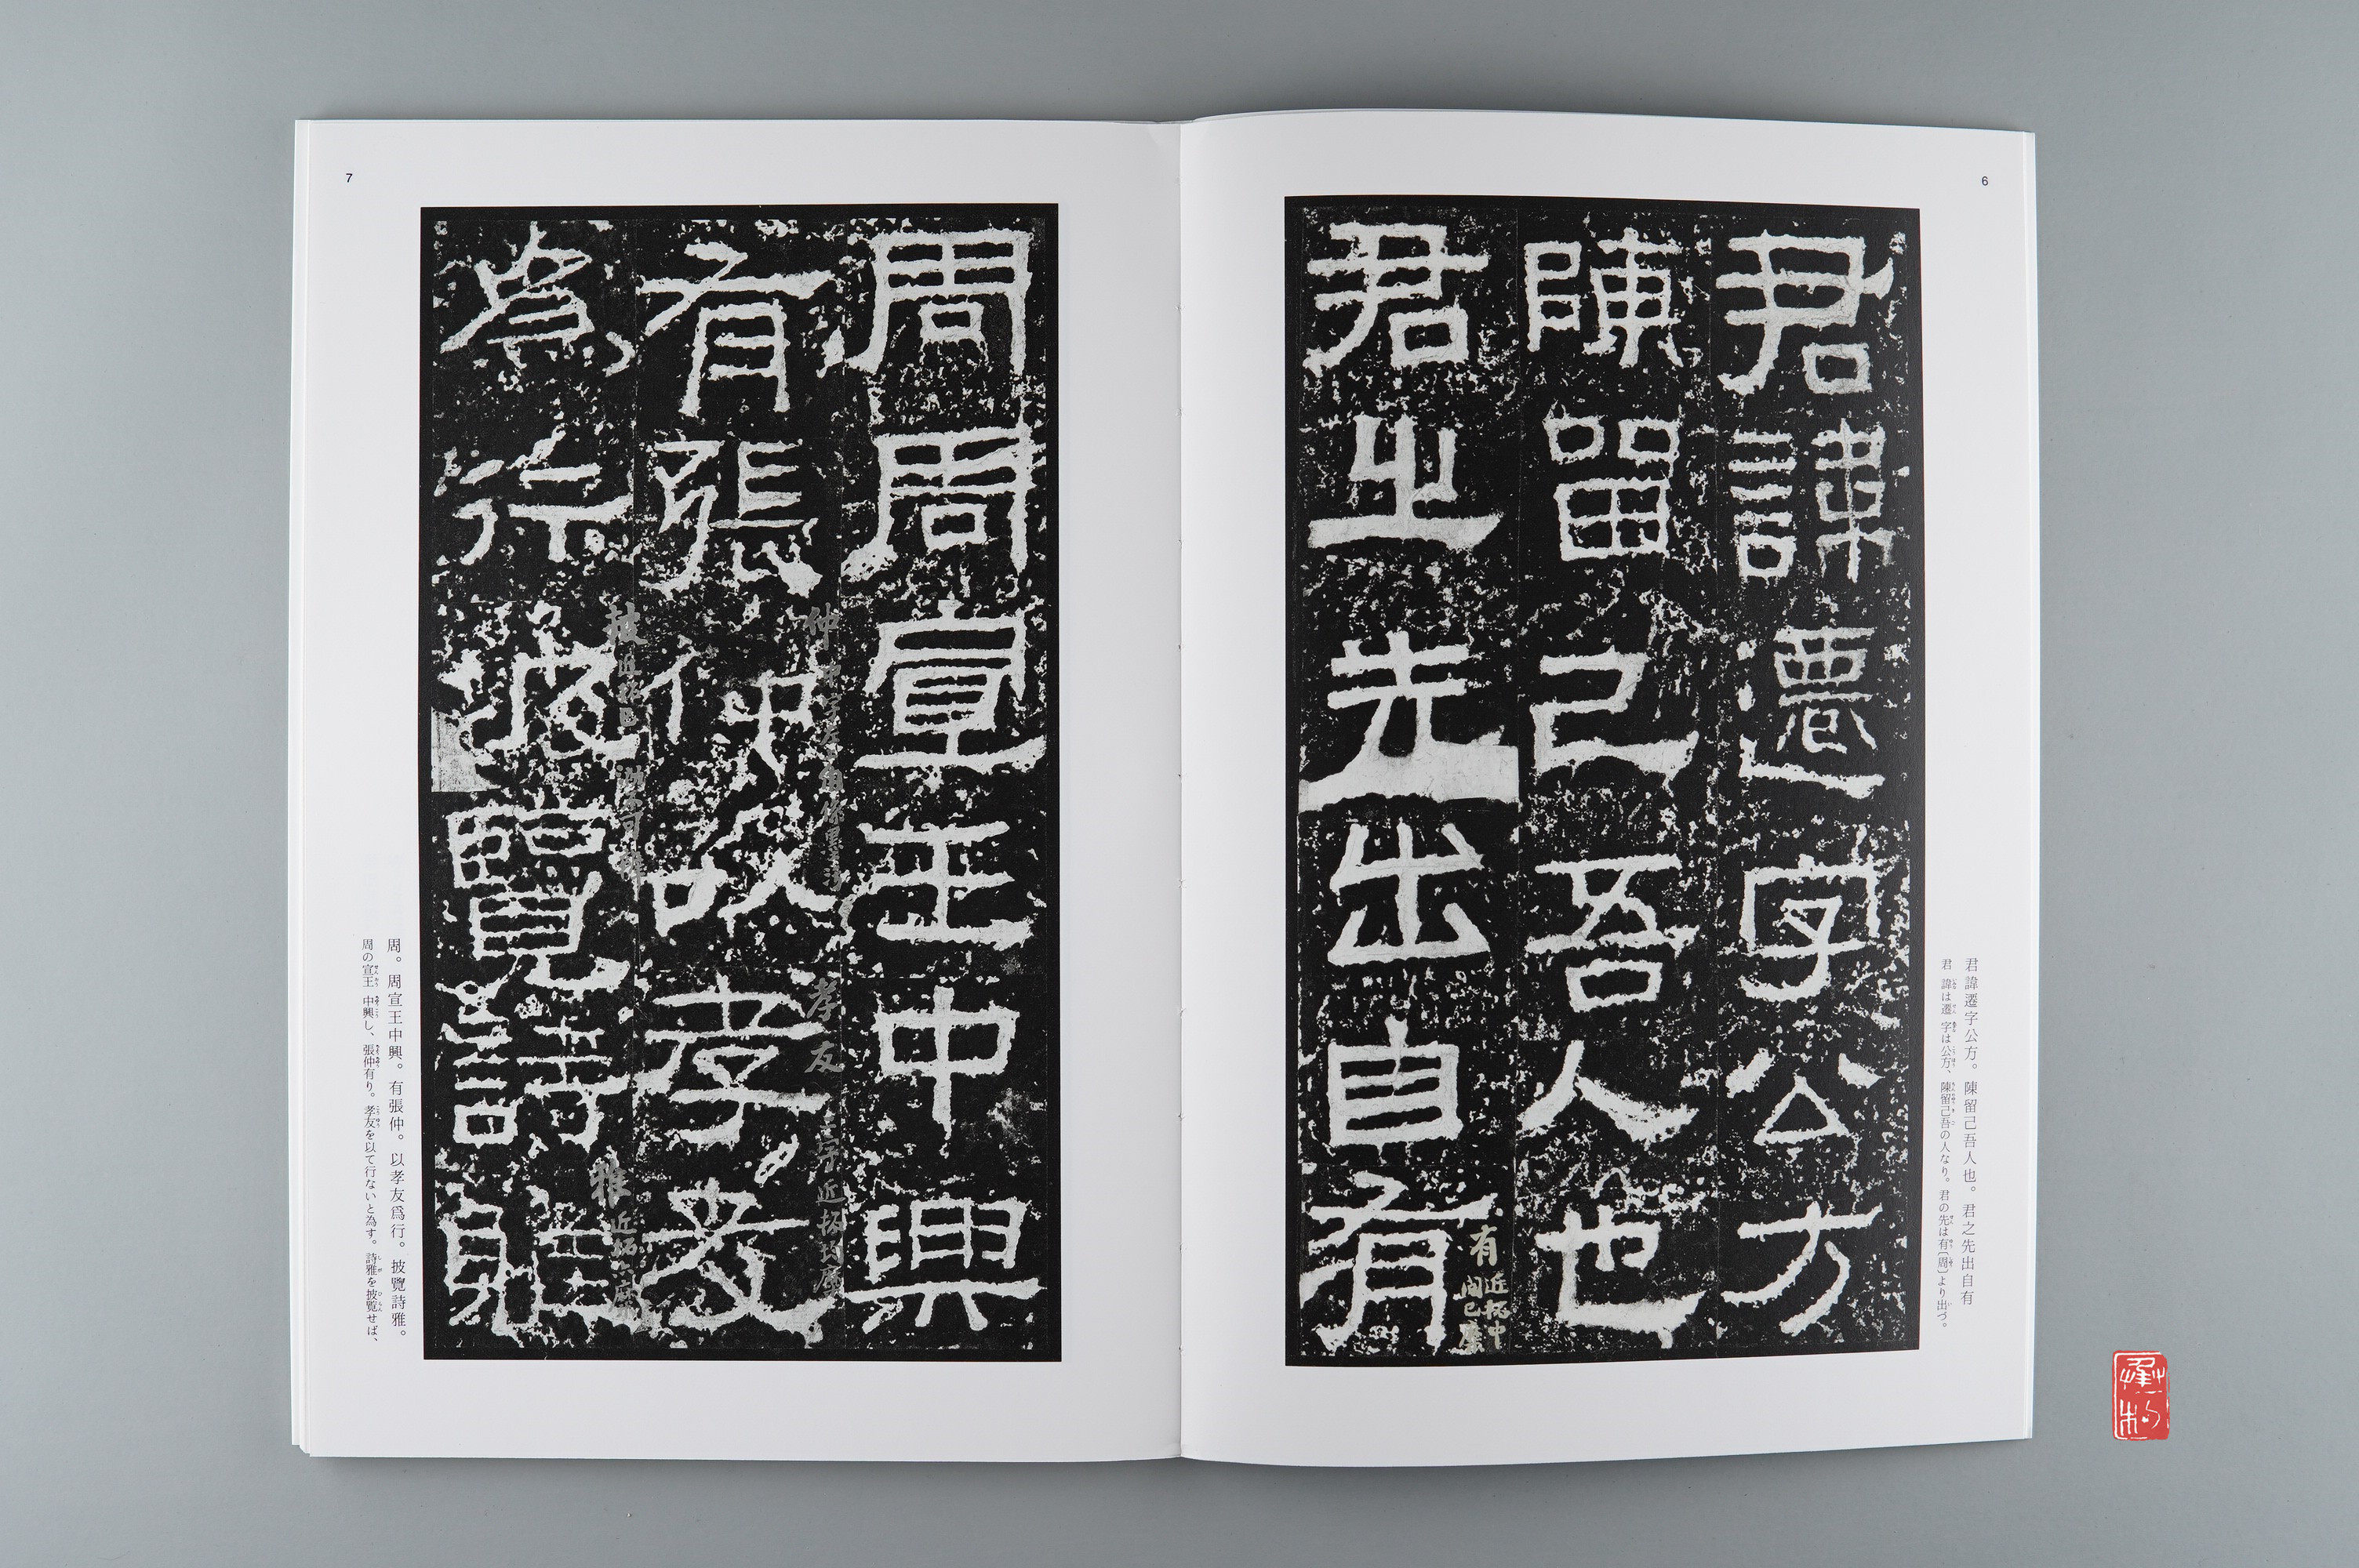 6
君諱遷字公方。陳留己吾人也。君之先出自有
君 諱は遷 字は公方、陳留己吾の人なり。君の先は有〔周〕より出づ。
君諱遷字公方
陳留己吾人也
君之先出自有
有 近拓中
間已磨
7
周周宣王中興
仲
孝友二字近拓均磨
有張仲以孝友
披近拓已泐
雅近拓
爲行披覽詩雅
周。周宣王中興。有張仲。以孝友爲行。披覽詩雅。
周の宣王 中興し、張仲有り。孝友を以て行ないと為す。詩雅を披覧せば、